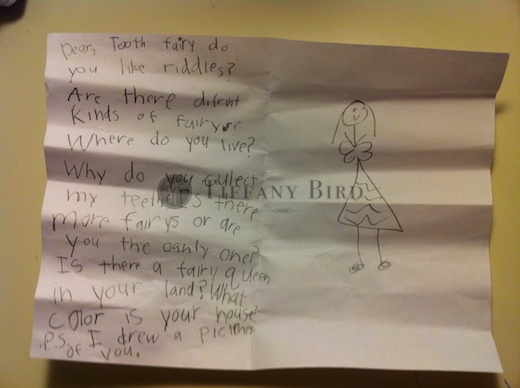 Dear, Tooth fairy do
you like riddles?
Are there difruit
Kinds of fairys?
Where do you live?
Why do you culect
my teeth? Is there
more fairys or are
you the oanly one?
Is there a fairy queen
in your land? What
color is your house?
P.S. I drew a picther
of you.
TIFFANY BIRD